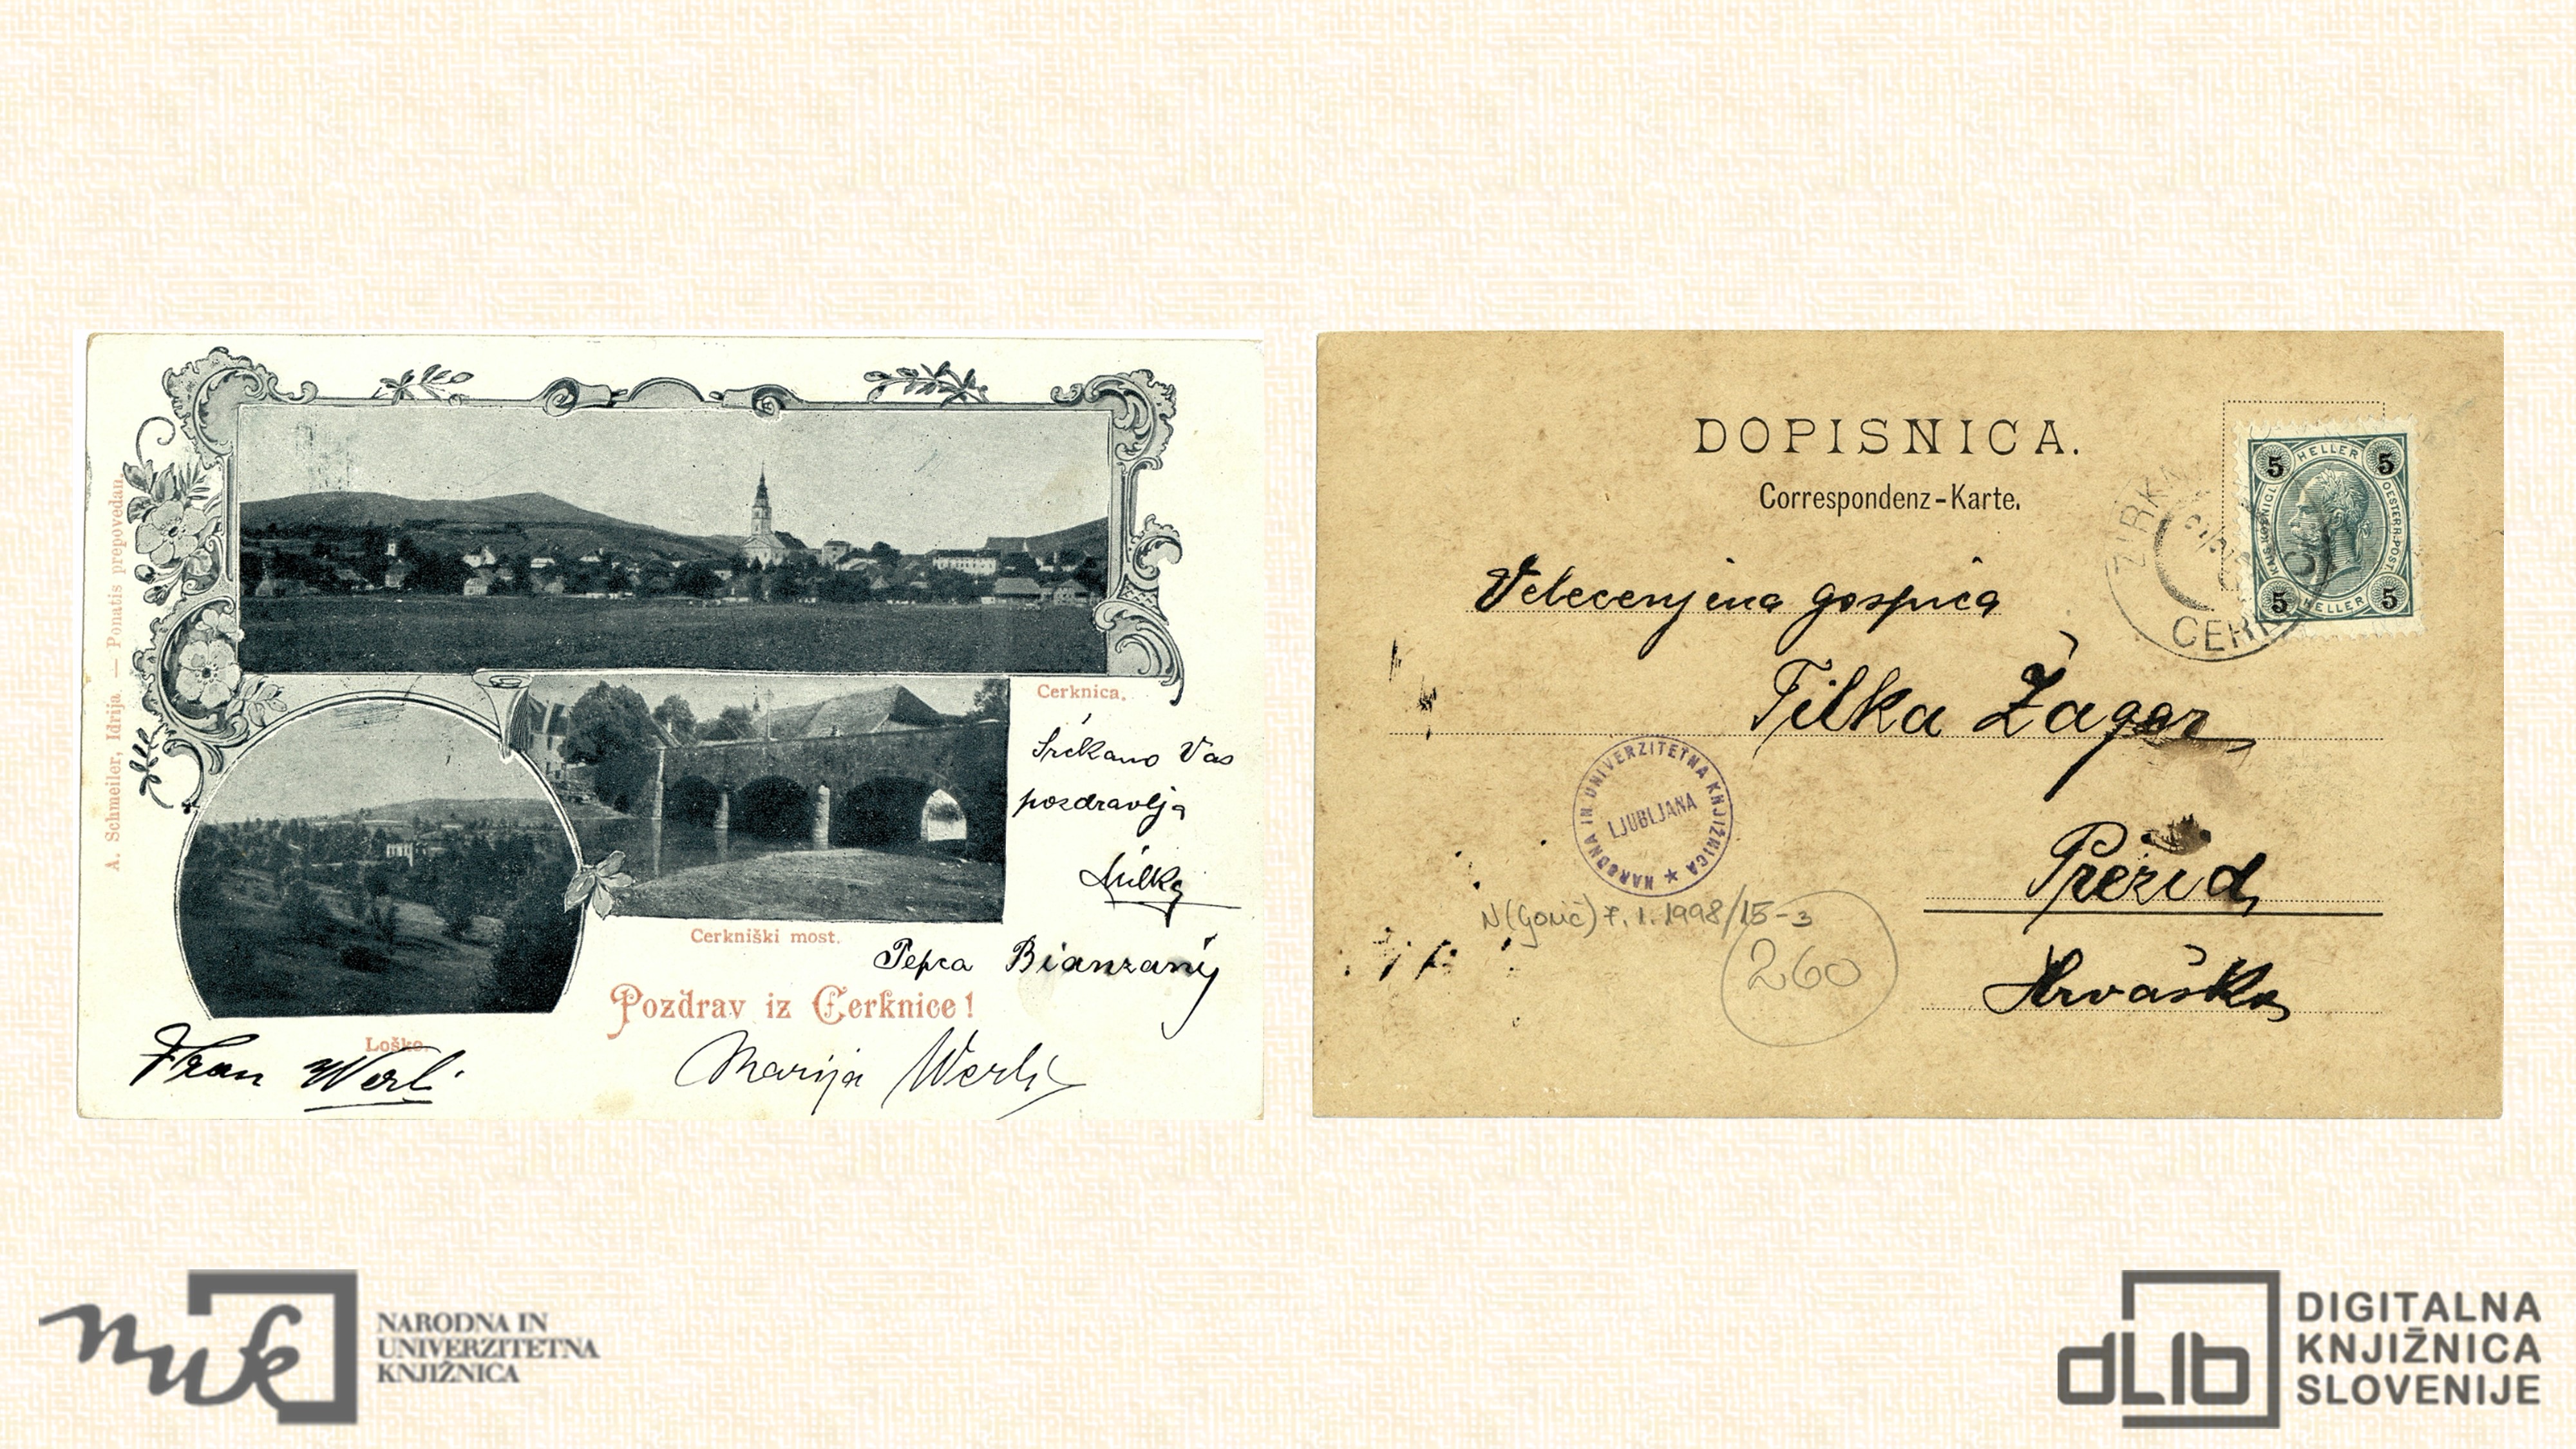 A. Schmeiler, Idrija. — Ponatis prepovedan.
Cerknica.
Srčkano Vas
pozdravlja
Milka
Cerkniški most.
Pepca Bianzany
Pozdrav iz Cerknice!
Loško.
Fran Werli
Marija Werli
DOPISNICA.
Correspondenz-Karte.
5 HELLER 5
KAIS. KOENIGL. OESTERR. POST
5 HELLER 5
ZIRKN
CERK
Velecenjena gospica
Tilka Žagar
NARODNA IN UNIVERZITETNA KNJIŽNICA
LJUBLJANA
Prezid
N(Gorič) 7. 1. 1998/15-3
260
Hrvaška
nuk
NARODNA IN
UNIVERZITETNA
KNJIŽNICA
dLib
DIGITALNA
KNJIŽNICA
SLOVENIJE